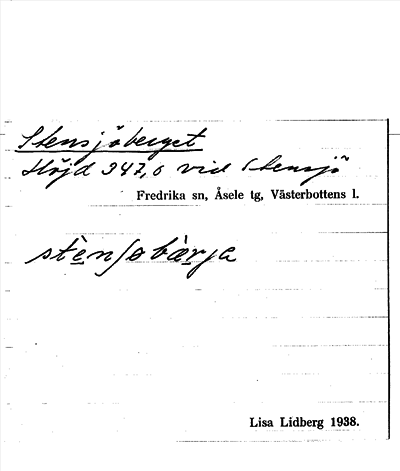 Stensjöberget
Höjd 347,0 vid Stensjö
Fredrika sn, Åsele tg, Västerbottens l.
Lisa Lidberg 1938.